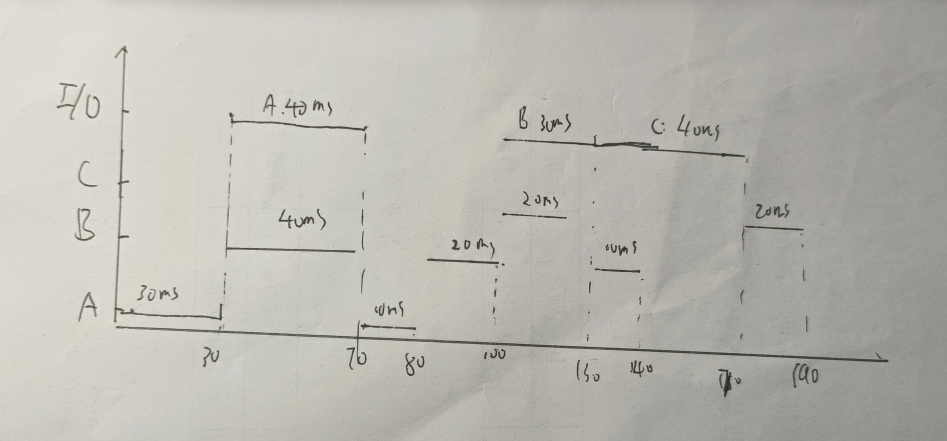 I/O
A.40ms
B 30ms
C: 40ms
C
20ms
20ms
B
40ms
20ms
10ms
A
30ms
10ms
30
70
80
100
130
140
190